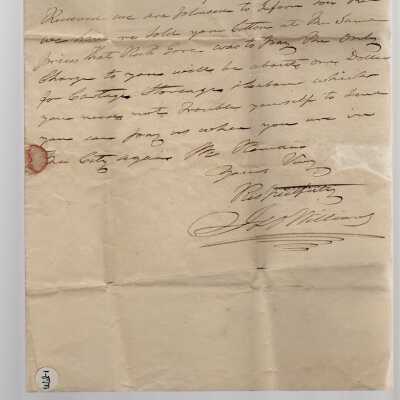 Received we are pleased to inform you that
we have no Sold your Cotton at the Same
prices that was to pay the Only
Charge to you will be about One Dollar
for Cartage Storage & Labour which
you need not Trouble yourself to Send
you can pay us when you are in
the City again We Remain
Yours Very
Respectfully
Williams